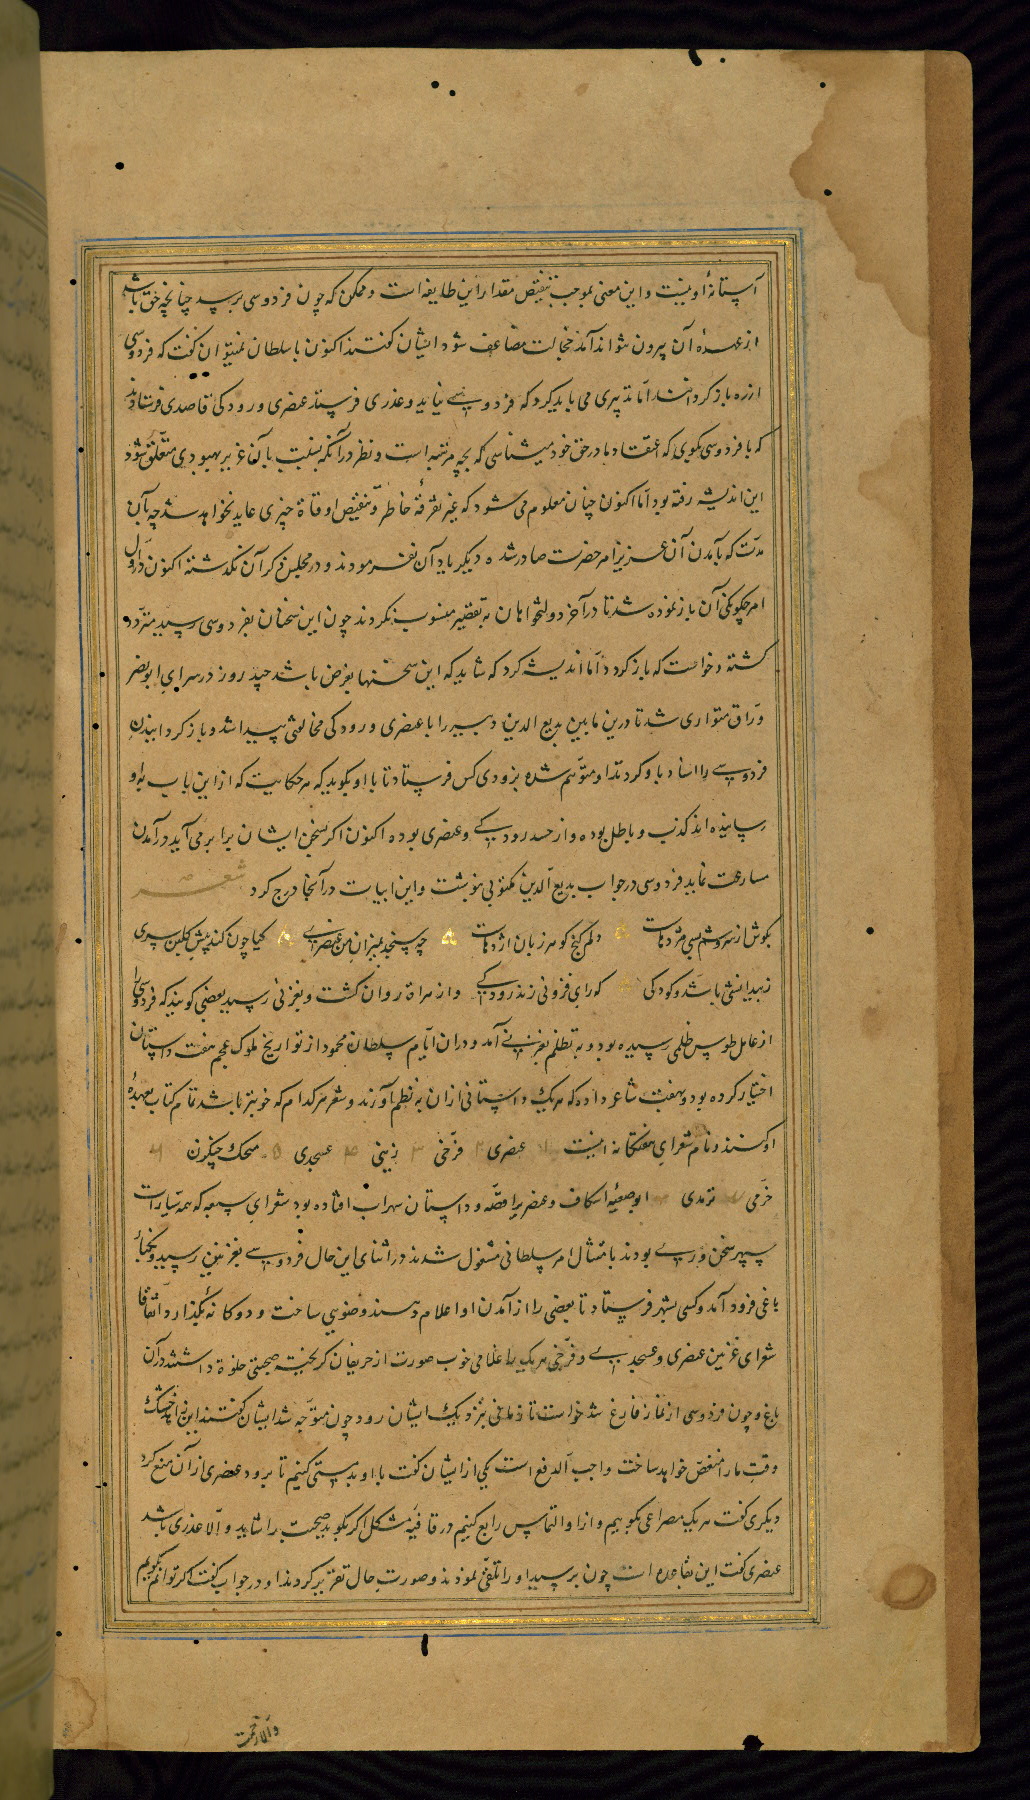 آستانهٔ اوست و این معنی بموجب تنقیص مقدار این طایفه است و ممکن که چون فردوسی برسد چنانچه حق باشد
از عهدهٔ آن بیرون نتواند آمد خجالت مضاعف شود ایشان گفتند اکنون با سلطان نمیتوان گفت که فردوسی
از ره باز گرداند اما تدبیری می باید کرد که فردوسی نیاید و عذری فرستد عنصری و رودکی قاصدی فرستادند
که با فردوسی بگوی که اعتقاد ما در حق خود میشناسی که بچه مرتبه است و نظر در آنکه بنسبت با آنعزیز بهبودی متعلق شود
این اندیشه رفته بود اما اکنون چنان معلوم می شود که غیر تفرقهٔ خاطر و تنقیص اوقات چیزی عاید نخواهد شد چه با آن
مدت که بآمدن آن عزیز امر حضرت صادر شده دیگر یاد آن نفرمودند و در مجلس ذکر آن نگذشته اکنون در اول
امر چگونگی آن باز نموده شد تا در آخر دولتخواهان به تقصیر منسوب نگردند چون این سخنان بفردوسی رسید متردد
گشته و خواست که باز گردد اما اندیشه کرد که شاید که این سخنها بغرض باشد چند روز در سرای ابو نصر
وراق متواری شد تا درین مابین بدیع الدین دبیر را با عنصری و رودکی مخالفتی پیدا شد و باز گردانیدن
فردوسی را اسناد باو کردند او متوهم شده بزودی کس فرستاد تا با او بگوید که هر حکایت که ازین باب باو
رسانیده اند کذب و باطل بوده و از حسد رودکی و عنصری بوده اکنون اگر سخن ایشان برابر می آید در آمدن
مسارعت نماید فردوسی در جواب بدیع الدین مکتوبی نوشت و این ابیات در آنجا درج کرد شعر
بگوش از سروشم بسی مژدهاست دلم گنج گوهر زبان اژدهاست چه سنجد بمیزان من عنصری گیا چون کند پیش گلبن سری
زبیدانشی باشد و کودکی که رای فزونی زند رودکی و از هراة روان گشت و بغزنی رسید بعضی گویند که فردوسی را
از عامل طوس ظلمی رسیده بود و به تظلم بغزنی آمد و دران ایام سلطان محمود از تواریخ ملوک عجم هفت داستان
اختیار کرده بود و بهفت شاعر داده که هر یک داستانی ازان به نظم آورند و شعر هر کدام که خوبتر باشد تمام کتاب بعهدهٔ
او کنند و نام شعرای هفتگانه اینست ۱ عنصری ۲ فرخی ۳ زینی ۴ عسجدی ۵ منجک چنگزن ۶
خرمی ۷ ترمدی ابو حنیفه اسکاف و عنصری را قصه و داستان سهراب افتاده بود شعرای سبعه که همه سیارات
سپهر سخن وری بودند بامتثال امر سلطانی مشغول شدند در اثنای این حال فردوسی بغزنین رسید و بکنار
باغی فرود آمد و کسی بشهر فرستاد تا بعضی را از آمدن او اعلام دهند وضویی ساخت و دوگانه بگذارد اتفاقا
شعرای غزنین عنصری و عسجدی و فرخی هر یک با غلامی خوب صورت از حریفان گریخته صحبتی خلوة داشتند در آن
باغ و چون فردوسی از نماز فارغ شد خواست تا زمانی نزدیک ایشان رود چون متوجه شد ایشان گفتند این زاهد خشک
وقت ما را منغص خواهد ساخت واجب الدفع است یکی از ایشان گفت با او بدمستی کنیم تا برود عنصری از آن منع کرد
دیگری گفت هر یک مصراعی بگوییم و از او التماس رابع کنیم در قافیهٔ مشکل اگر بگوید صحبت را شاید و الا عذری باشد
عنصری گفت این بقاعده است چون برسید او را تلقی نمودند و صورت حال تقریر کردند او در جواب گفت اگر توانم بگویم
والا زحمت